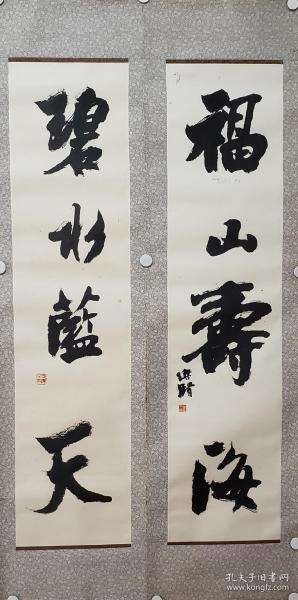 福山壽海
碧水藍天
孔夫子旧书网
www.kongfz.com